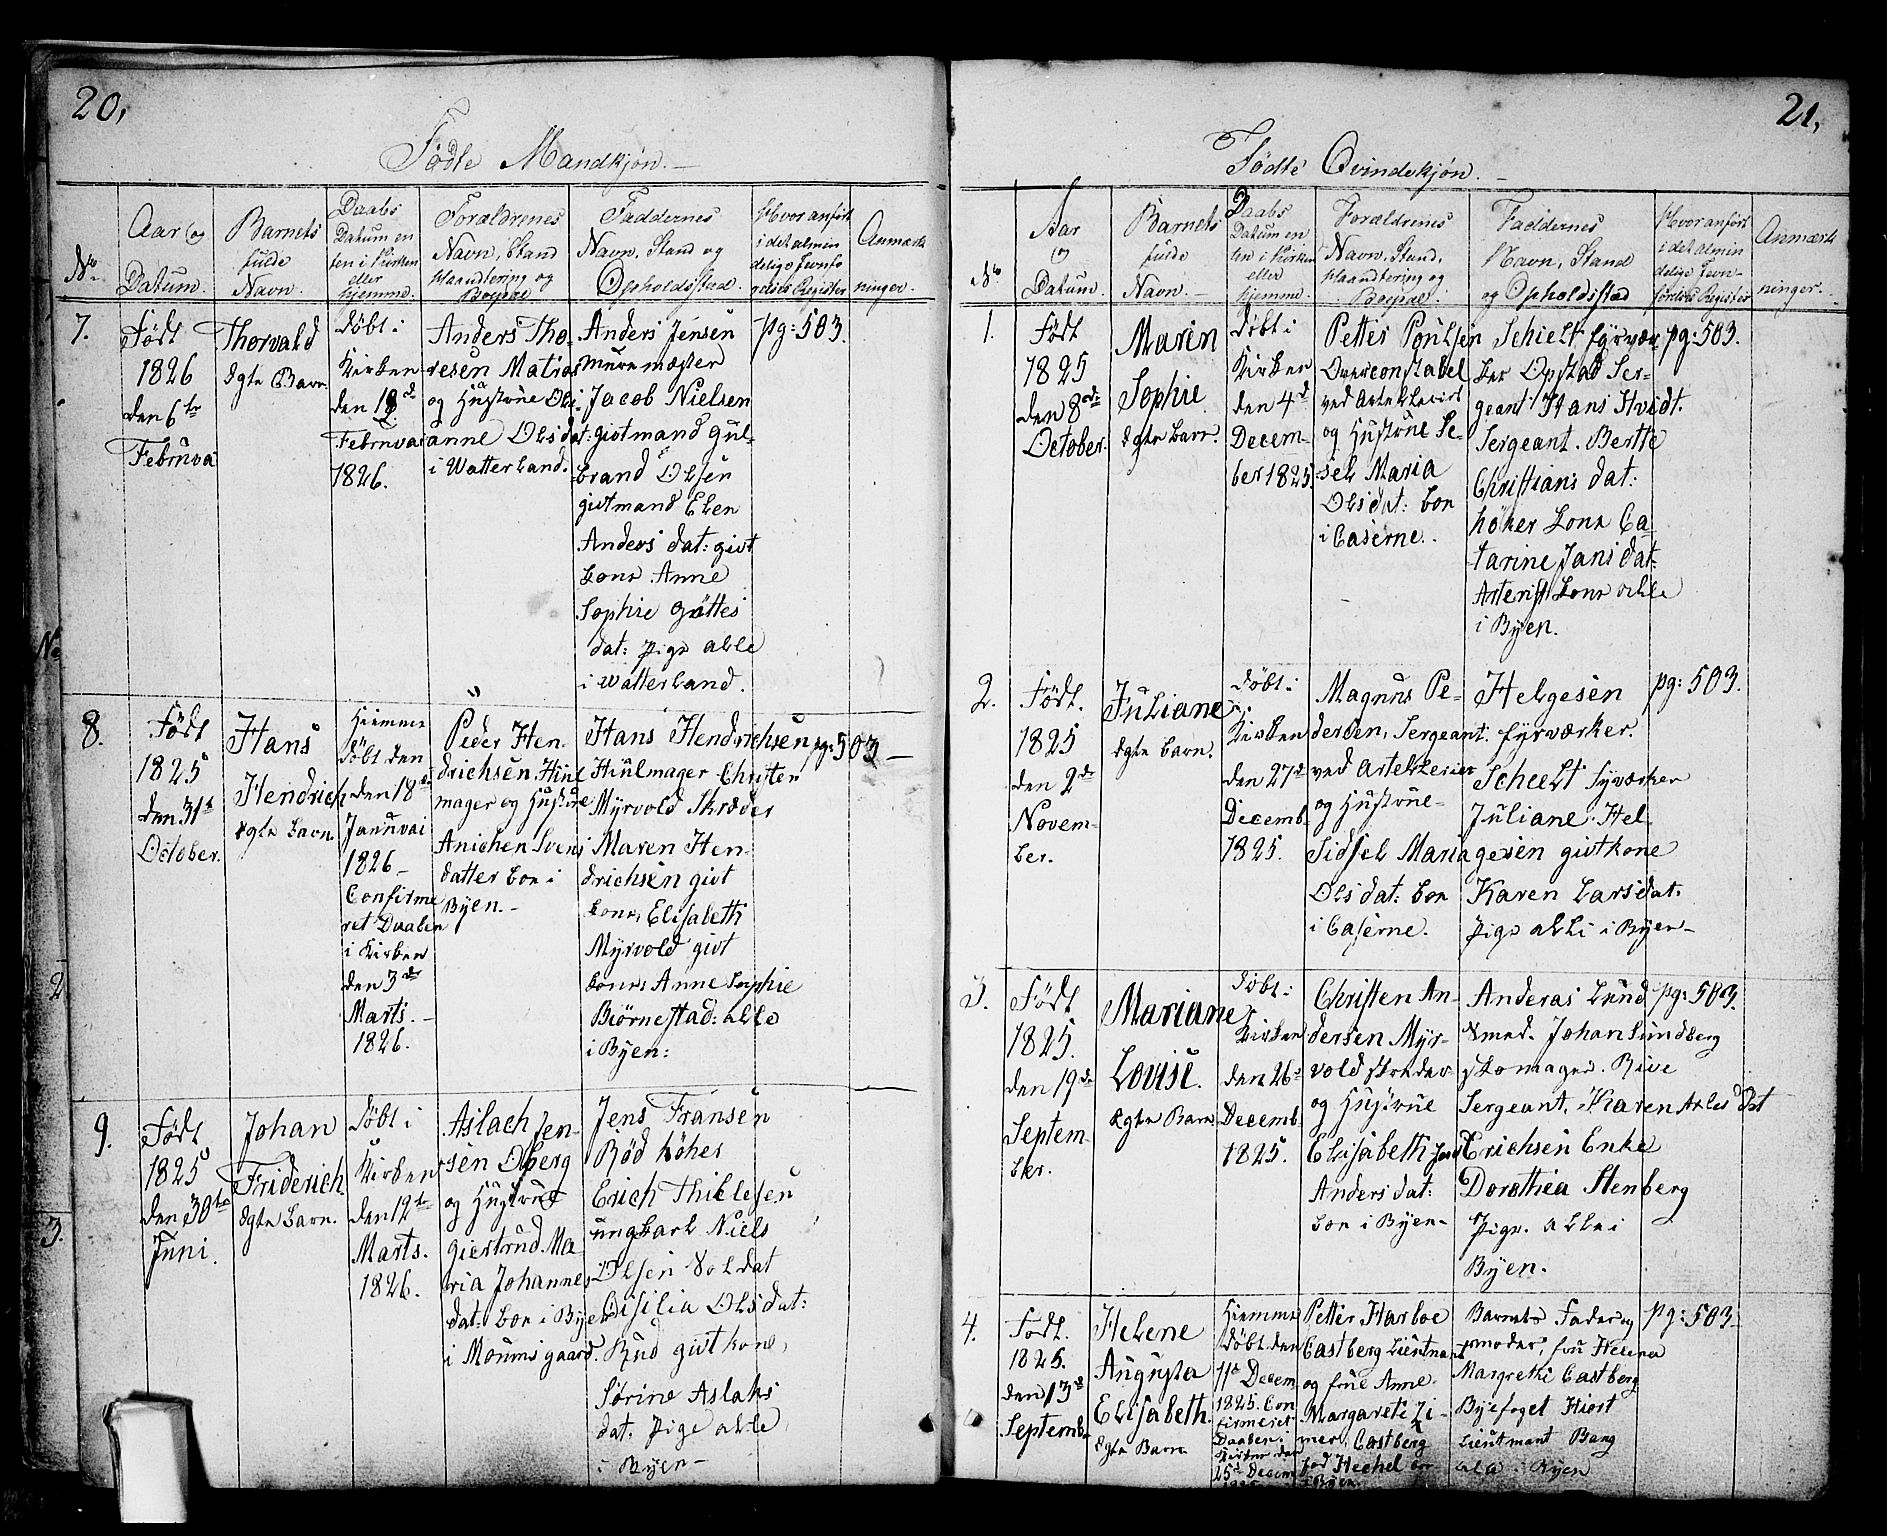 20,
Födte Mandkjøn.
No.
Aar og
Datum.
Barnets
fulde
Navn.
Daabs
Datum en
ten i Kirken
eller
hjemme.
Forældrenes
Navn, Stand
Haandtering og
Bopæl
Faddernes
Navn, Stand og
Opholdsstad.
Hvor anført
i det almin
delige Jevnfø
relses Register
Anmærk
ninger.
7.
Født
1826
den 6te
Februva
Thorvald
ægte Barn
döbt i
Kirken
den 12d
Februvar
1826.
Anders Tho-
resen Matros
og Hustrue Ole-
anne Olsdat:
i Watterland.
Anders Jensen
muremæster
Jacob Nielsen
givtmand Gul-
brand Olsen
givtmand Elen
Anders dat: givt
kone Anne
Sophie Göttes
dat: pige alle
i Watterland.
pg: 503.
8.
Født
1825
den 31t
October.
Hans
Hendrich
ægte barn
Hiemme
döbt den
den 18de
Januvai
1826 -
Confirme
ret Daaben
i Kirken
den 3de
Marts. -
1826.
Peder Hen
drichsen Hiul
mager og Hustrue
Anichen Svens
datter boe i
Byen. -
Hans Hendrichsen
Hiulmager Christen
Myrvold Skræder
Maren Hen-
drichsen givt
kone, Elisabeth
Myrvold givt
kone Anne Sophie
Biörnestad: alle
i Byen:
pg: 503 -
9.
Født
1825
den 30te
Juni.
Johan
Friderich
ægte barn.
döbt i
Kirken
den 12te
Marts.
1826.
Aslach Jen-
sen Oberg
og Hustrue
Giertrud Ma
ria Johannes
dat: boe i Byen
i Moumsgaard.
Jens Fransen
Röd höker
Erich Thillesen
ungkarl Niels
Olsen Soldat
Cisilia Olsdat:
Rud givtkone,
Sörine Aslaks
dat: pige alle
i Byen -
21,
Födte Qvindekjøn.
No
Aar
og
Datum.
Barnets
fulde
Navn.
Daabs
Datum en
ten i Kirken
eller
hjemme.
Forældrenes
Navn, Stand,
Haandtering og
Bopæl
Faddernes
Navn, Stand
og Opholdsstad
Hvor anført
i det almin
delige Jevn-
førelses Register
Anmærk
ninger.
1.
Født
1825
den 8de
October.
Marin
Sophie
ægte barn.
döbt i
Kirken
den 4d
Decem-
ber 1825.
Petter Poulsen
Overconstabel
ved Artelleriet
og Hustrue Se-
sel Maria
Olsdat: boe
i Caserne.
Schielt fyrvær
ker Opstad Ser-
geant Hans Hvidt.
Sergeant. Berthe
Christians dat:
höker kone Ca-
tarine Jans dat:
Artenist kone alle
i Byen.
pg: 503.
2.
Født.
1825
den 2de
Novem-
ber.
Juliane
ægte barn.
döbt i
Kirken
den 27d
Decemb.
1825.
Magnus Pe-
dersen, Sergeant
ved Artelleriet
og Hustrue-
Sidsel Maria
Olsdat: boe
i Caserne.
Helgesen
fyrværker.
Scheelt fyrværker
Juliane Hel-
gesen givtkone
Karen Larsdat:
pige alle i Byen-
pg: 503.
3.
Født
1825.
den 19de
Septem-
ber.
Mariane
Lovise.
ægte Barn
döbt i
Kirken
den 26d
Decemb.
1825.
Christen An-
dersen Myr-
vold skræder
og Hustrue
Elisabeth
Anders dat:
boe i Byen-
Anderas Lund
Smed. Johan Sundberg
skomager. Rive
Sergeant, Karen Arlesdat
Erichsen Enke
Dorothea Stenberg
pige. alle i
Byen.
pg: 503.
4.
Født.
1825.
den 13d
Septemb
Helene
Augusta
Elisabeth.
ægte Barn
Hiemme
döbt den
11d Decem
1825. Con
firmeret
Daaben i
Kirken den
25d Decem
Petter Harboe
Castberg Lieutnant
og frue Anne
Margarete Zi-
mer, Castberg
fød Hechel boe
i Byen
Barnets Fader og
moder, fru Helena
Margrethe Castberg
Byefoget Hiort
Lieutnant Bang
alle i Byen
pg: 503-